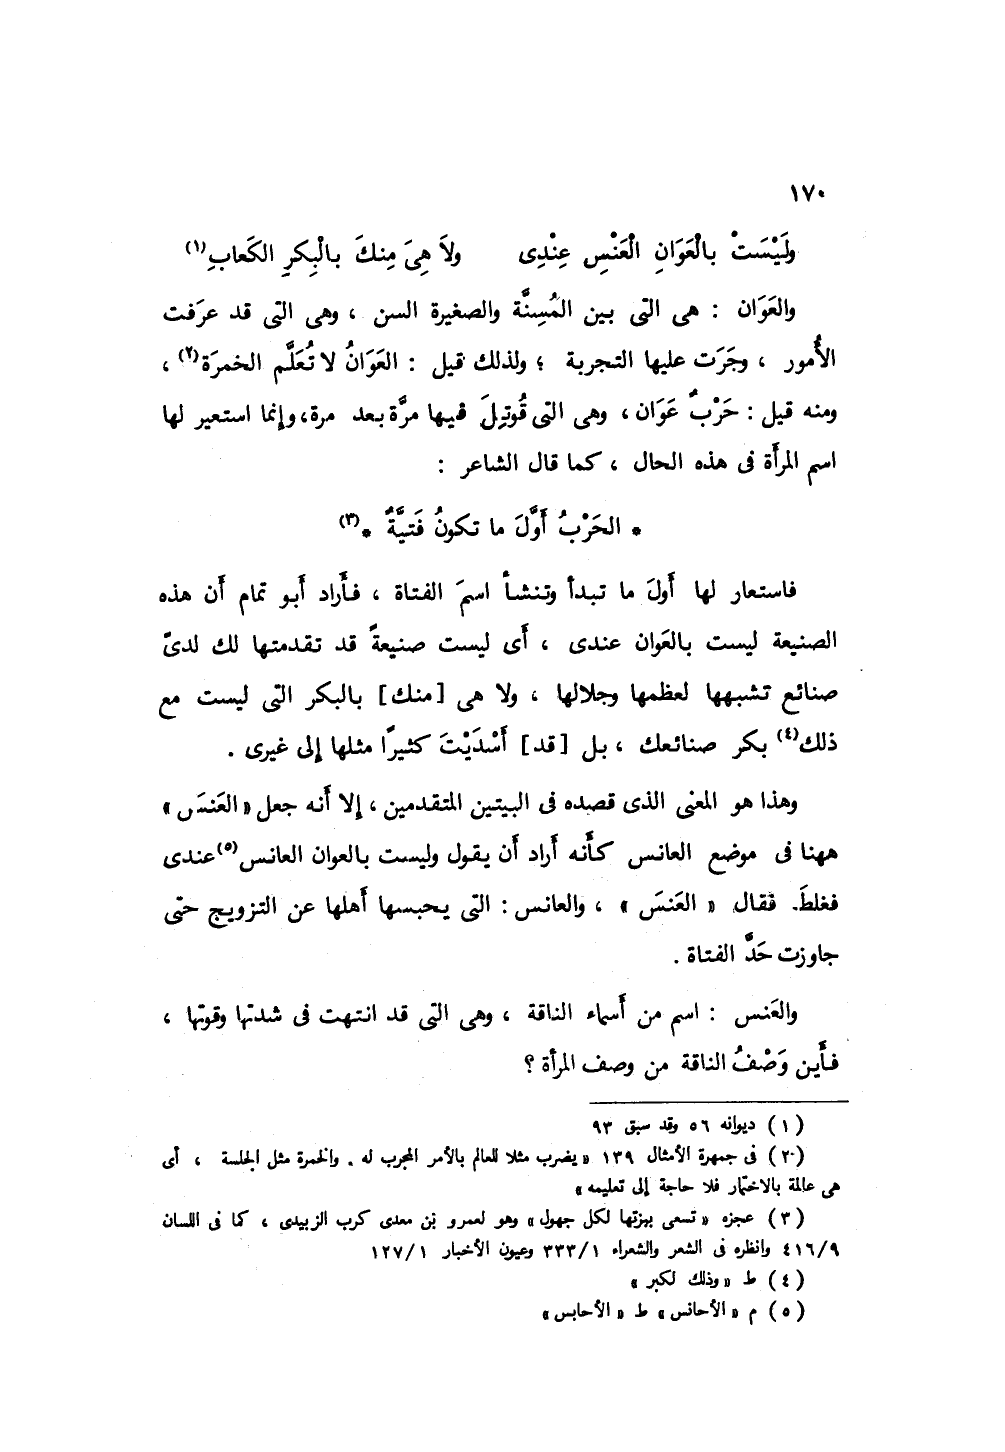 ١٧٠
ولَيْسَتْ بالْعَوَانِ الْعَنْسِ عِنْدِى ولاَ هِىَ مِنكَ بالْبِكرِ الكَعابِ(١)
والعَوَان : هى التى بين المُسِنَّة والصغيرة السن ، وهى التى قد عرَفت
الأُمور ، وجَرَت عليها التجربة ؛ ولذلك قيل : العَوَانُ لا تُعَلَّم الخمرَة(٢) ،
ومنه قيل : حَرْبٌ عَوَان ، وهى التى قُوتِلَ فيها مرَّة بعد مرة، وإنما استعير لها
اسم المرأَة فى هذه الحال ، كما قال الشاعر :
* الحَرْبُ أَوَّلَ ما تكونُ فَتيَّةٌ *(٣)
فاستعار لها أَولَ ما تبدأ وتنشأ اسمَ الفتاة ، فأَراد أَبو تمام أَن هذه
الصنيعة ليست بالعَوان عندى ، أَى ليست صنيعةً قد تقدمتها لك لدىّ
صنائع تشبهها لعظمها وجلالها ، ولا هى [منك] بالبكر التى ليست مع
ذلك(٤) بكر صنائعك ، بل [قد] أَسْدَيْتَ كثيرًا مثلها إلى غيرى .
وهذا هو المعنى الذى قصده فى البيتين المتقدمين ، إلا أَنه جعل «العَنسَ»
ههنا فى موضع العانس كأَنه أَراد أَن يقول وليست بالعوان العانس(٥) عندى
فغلطَ. فقال « العَنسَ » ، والعانس : التى يحبسها أَهلها عن التزويج حتى
جاوزت حَدَّ الفتاة .
والعَنس : اسم من أَسماء الناقة ، وهى التى قد انتهت فى شدتها وقوتها ،
فأَين وَصْفُ الناقة من وصف المرأة ؟
(١) ديوانه ٥٦ وقد سبق ٩٣
(٢) فى جمهرة الأمثال ١٣٩ « يضرب مثلا للعالم بالأمر المجرب له . والخمرة مثل الجلسة ، أى
هى عالمة بالاختمار فلا حاجة إلى تعليمه »
(٣) عجزه « تسعى ببزتها لكل جهول » وهو لعمرو بن معدى كرب الزبيدى ، كما فى اللسان
٤١٦/٩ وانظره فى الشعر والشعراء ٣٣٣/١ وعيون الأخبار ١٢٧/١
(٤) ط « وذلك لكبر »
(٥) م « الأحانس » ط « الأحابس »